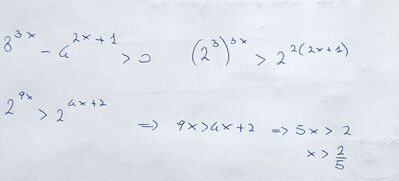 8^{3x} - 4^{2x+1} > 0    (2^3)^{3x} > 2^{2(2x+1)}
2^{9x} > 2^{4x+2}
⇒ 9x > 4x + 2 ⇒ 5x > 2
x > 2/5